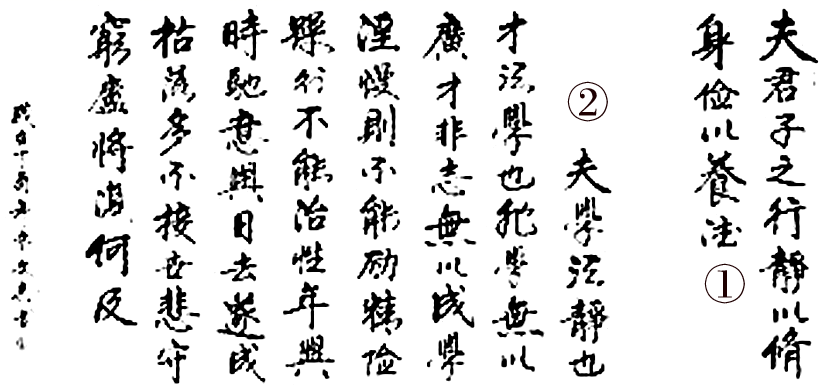 夫君子之行靜以脩
身儉以養德 ①
② 夫學須靜也
才須學也非學無以
廣才非志無以成學
淫慢則不能励精險
躁則不能治性年與
時馳意與日去遂成
枯落多不接世悲守
窮廬將復何及